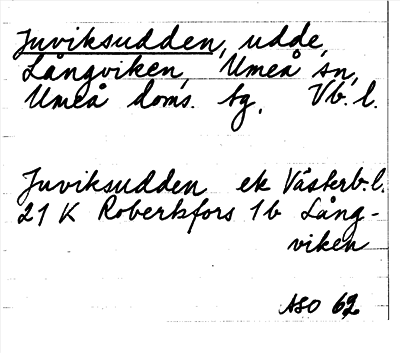 Juviksudden, udde,
Långviken, Umeå sn,
Umeå doms. tg, Vb. l.
Juviksudden ek Västerb. l.
21 K Robertsfors 1b Lång-
viken
ASO 62